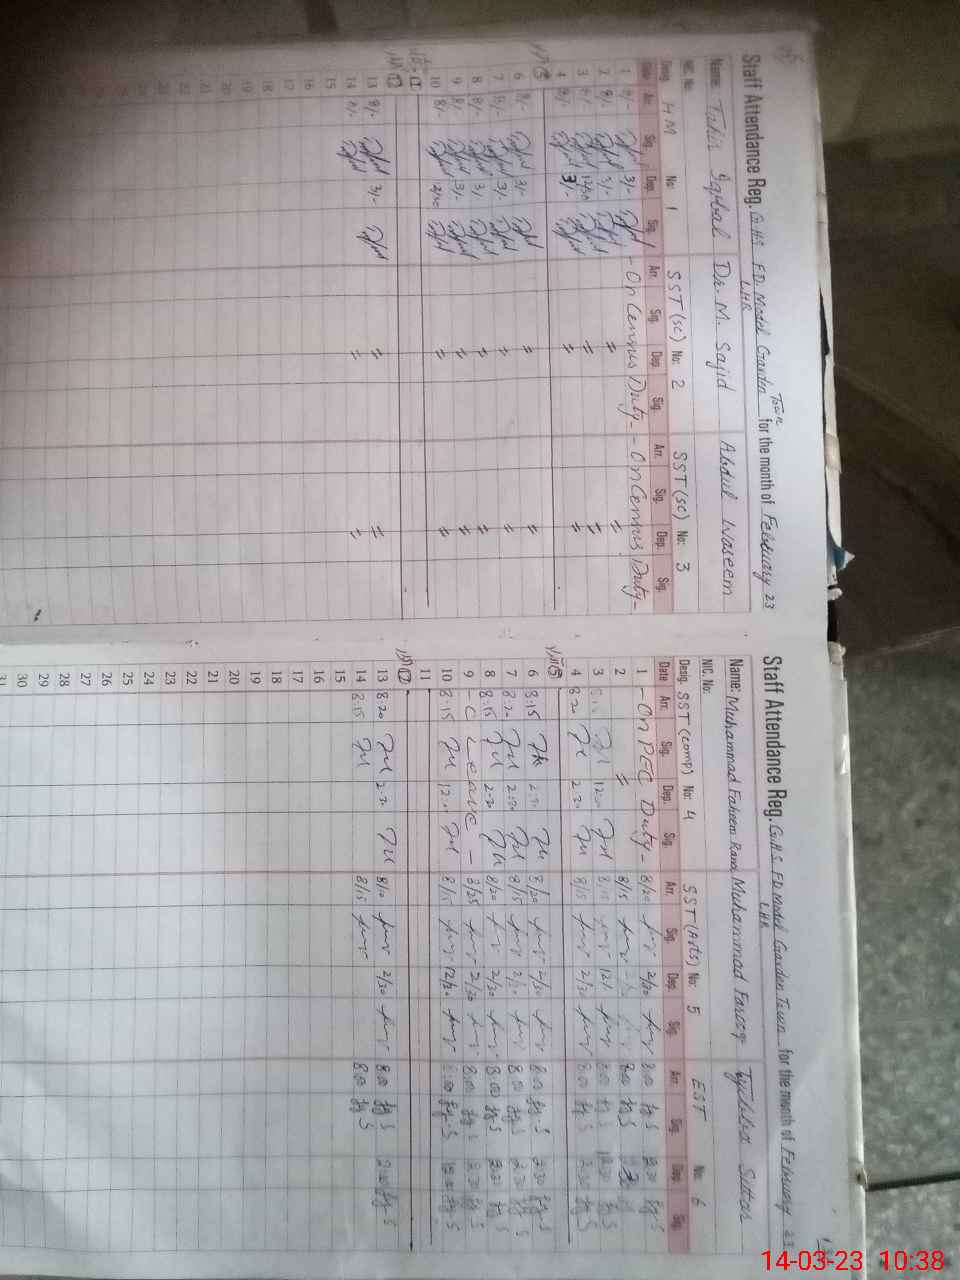 Staff Attendance Reg. G.H.S F.D. Model Garden Town LHR for the month of February 23
Name: Tahir Iqbal Dr. M. Sajid Abdul Waseem
NIC. No:
Desig. HM No: 1 SST (sc) No: 2 SST (sc) No: 3
Date Arr. Sig. Dep. Sig. Arr. Sig. Dep. Sig. Arr. Sig. Dep. Sig.
1 8/- 3/- - On Census Duty - - On Census Duty -
2 8/- 3/- = =
3 8/- 12/30 = =
4 8/- 3/- = =
5
6 8/- 3/- = =
7 8/- 3/- = =
8 8/- 3/- = =
9 8/- 3/- = =
10 8/- 12/30 = =
11
12
13 8/- 3/- = =
14 8/- = =
15
16
17
18
19
20
21
22
23
24
Staff Attendance Reg. G.H.S. F.D. Model Garden Town LHR for the month of February 23
Name: Muhammad Faheem Rana Muhammad Farooq Sittar
NIC. No:
Desig. SST (comp) No: 4 SST (Arts) No: 5 EST No: 6
Date Arr. Sig. Dep. Sig. Arr. Sig. Dep. Sig. Arr. Sig. Dep. Sig.
1 - On PEC Duty - 8/20 2/30 8:00 2:30
2 = 8/15 8:00 2:30
3 12:00 8/15 12/ 8:00 12:00
4 8:20 2:30 8/15 2/30 8:00 2:30
5
6 8:15 2:30 8/20 2/30 8:00 2:30
7 8:20 2:30 8/15 2/30 8:00 2:30
8 8:15 2:30 8/20 2/30 8:00 2:30
9 - C Leave - 8/25 2/30 8:00 2:30
10 8:15 12:00 8/15 12/30 8:00 12:00
11
12
13 8:20 2:30 8/10 2/30 8:00 2:30
14 8:15 8/15 8:00
15
16
17
18
19
20
21
22
23
24
25
26
27
28
29
30
31
14-03-23 10:38